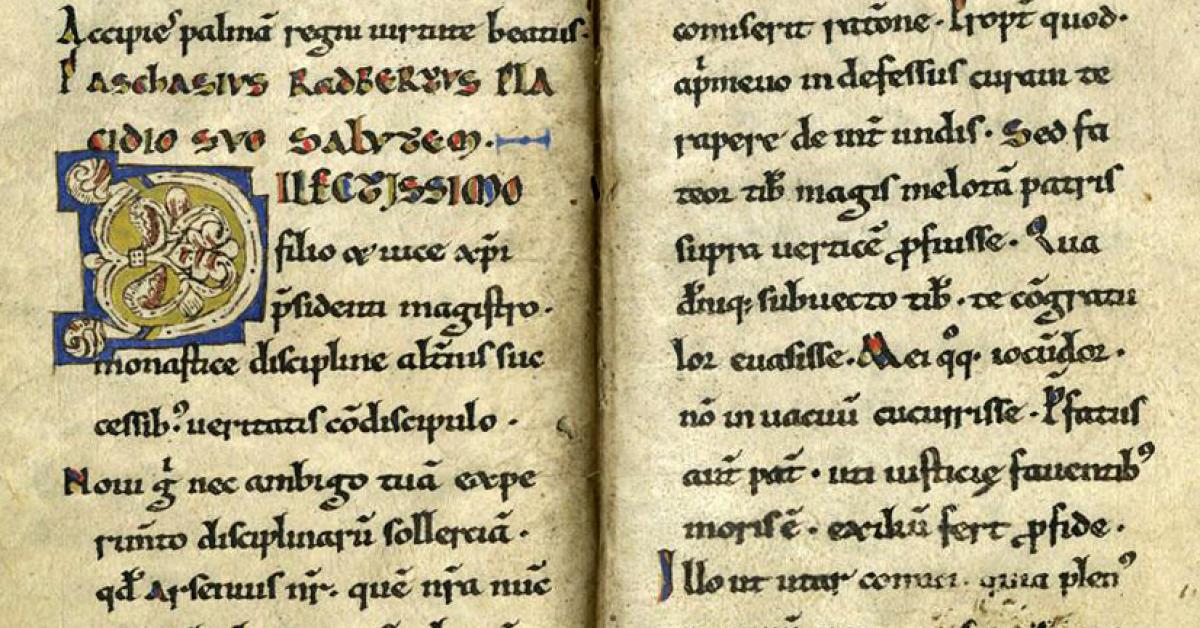 Accipies palmā regni uirtute beatus.
PASChASIVS RadBERTVS PLA
CIDIO SVO SALVTEM.
DILECTISSIMO
filio & uice xp̄i
p̄sidenti magistro.
monastice discipline alt̄ius suc
cessib; ueritatis cōdiscipulo.
Noui g̊ nec ambigo tuā expe
rimto disciplinarū sollerciā.
qd̄ Arsenius nr̄. quē nr̄a nūc
comiserit ratōne. Propt̄ quod.
ap̄meuo indefessus curam te
rapere de int̄ undis. Sed fa
teor tib̄ magis melotā patris
supra uerticē ꝓfuisse. Qua
deniq; subuecto tib̄. te cōgratu
lor euasisse. Mei qͦqͦ. iocūdor.
nō in uacuū cucurrisse. P̄fatus
aūt pat̄. uti iusticię fauentibꝰ
moris ē. exiliū fert ꝓ fide.
Illo ut utar quia plenꝰ